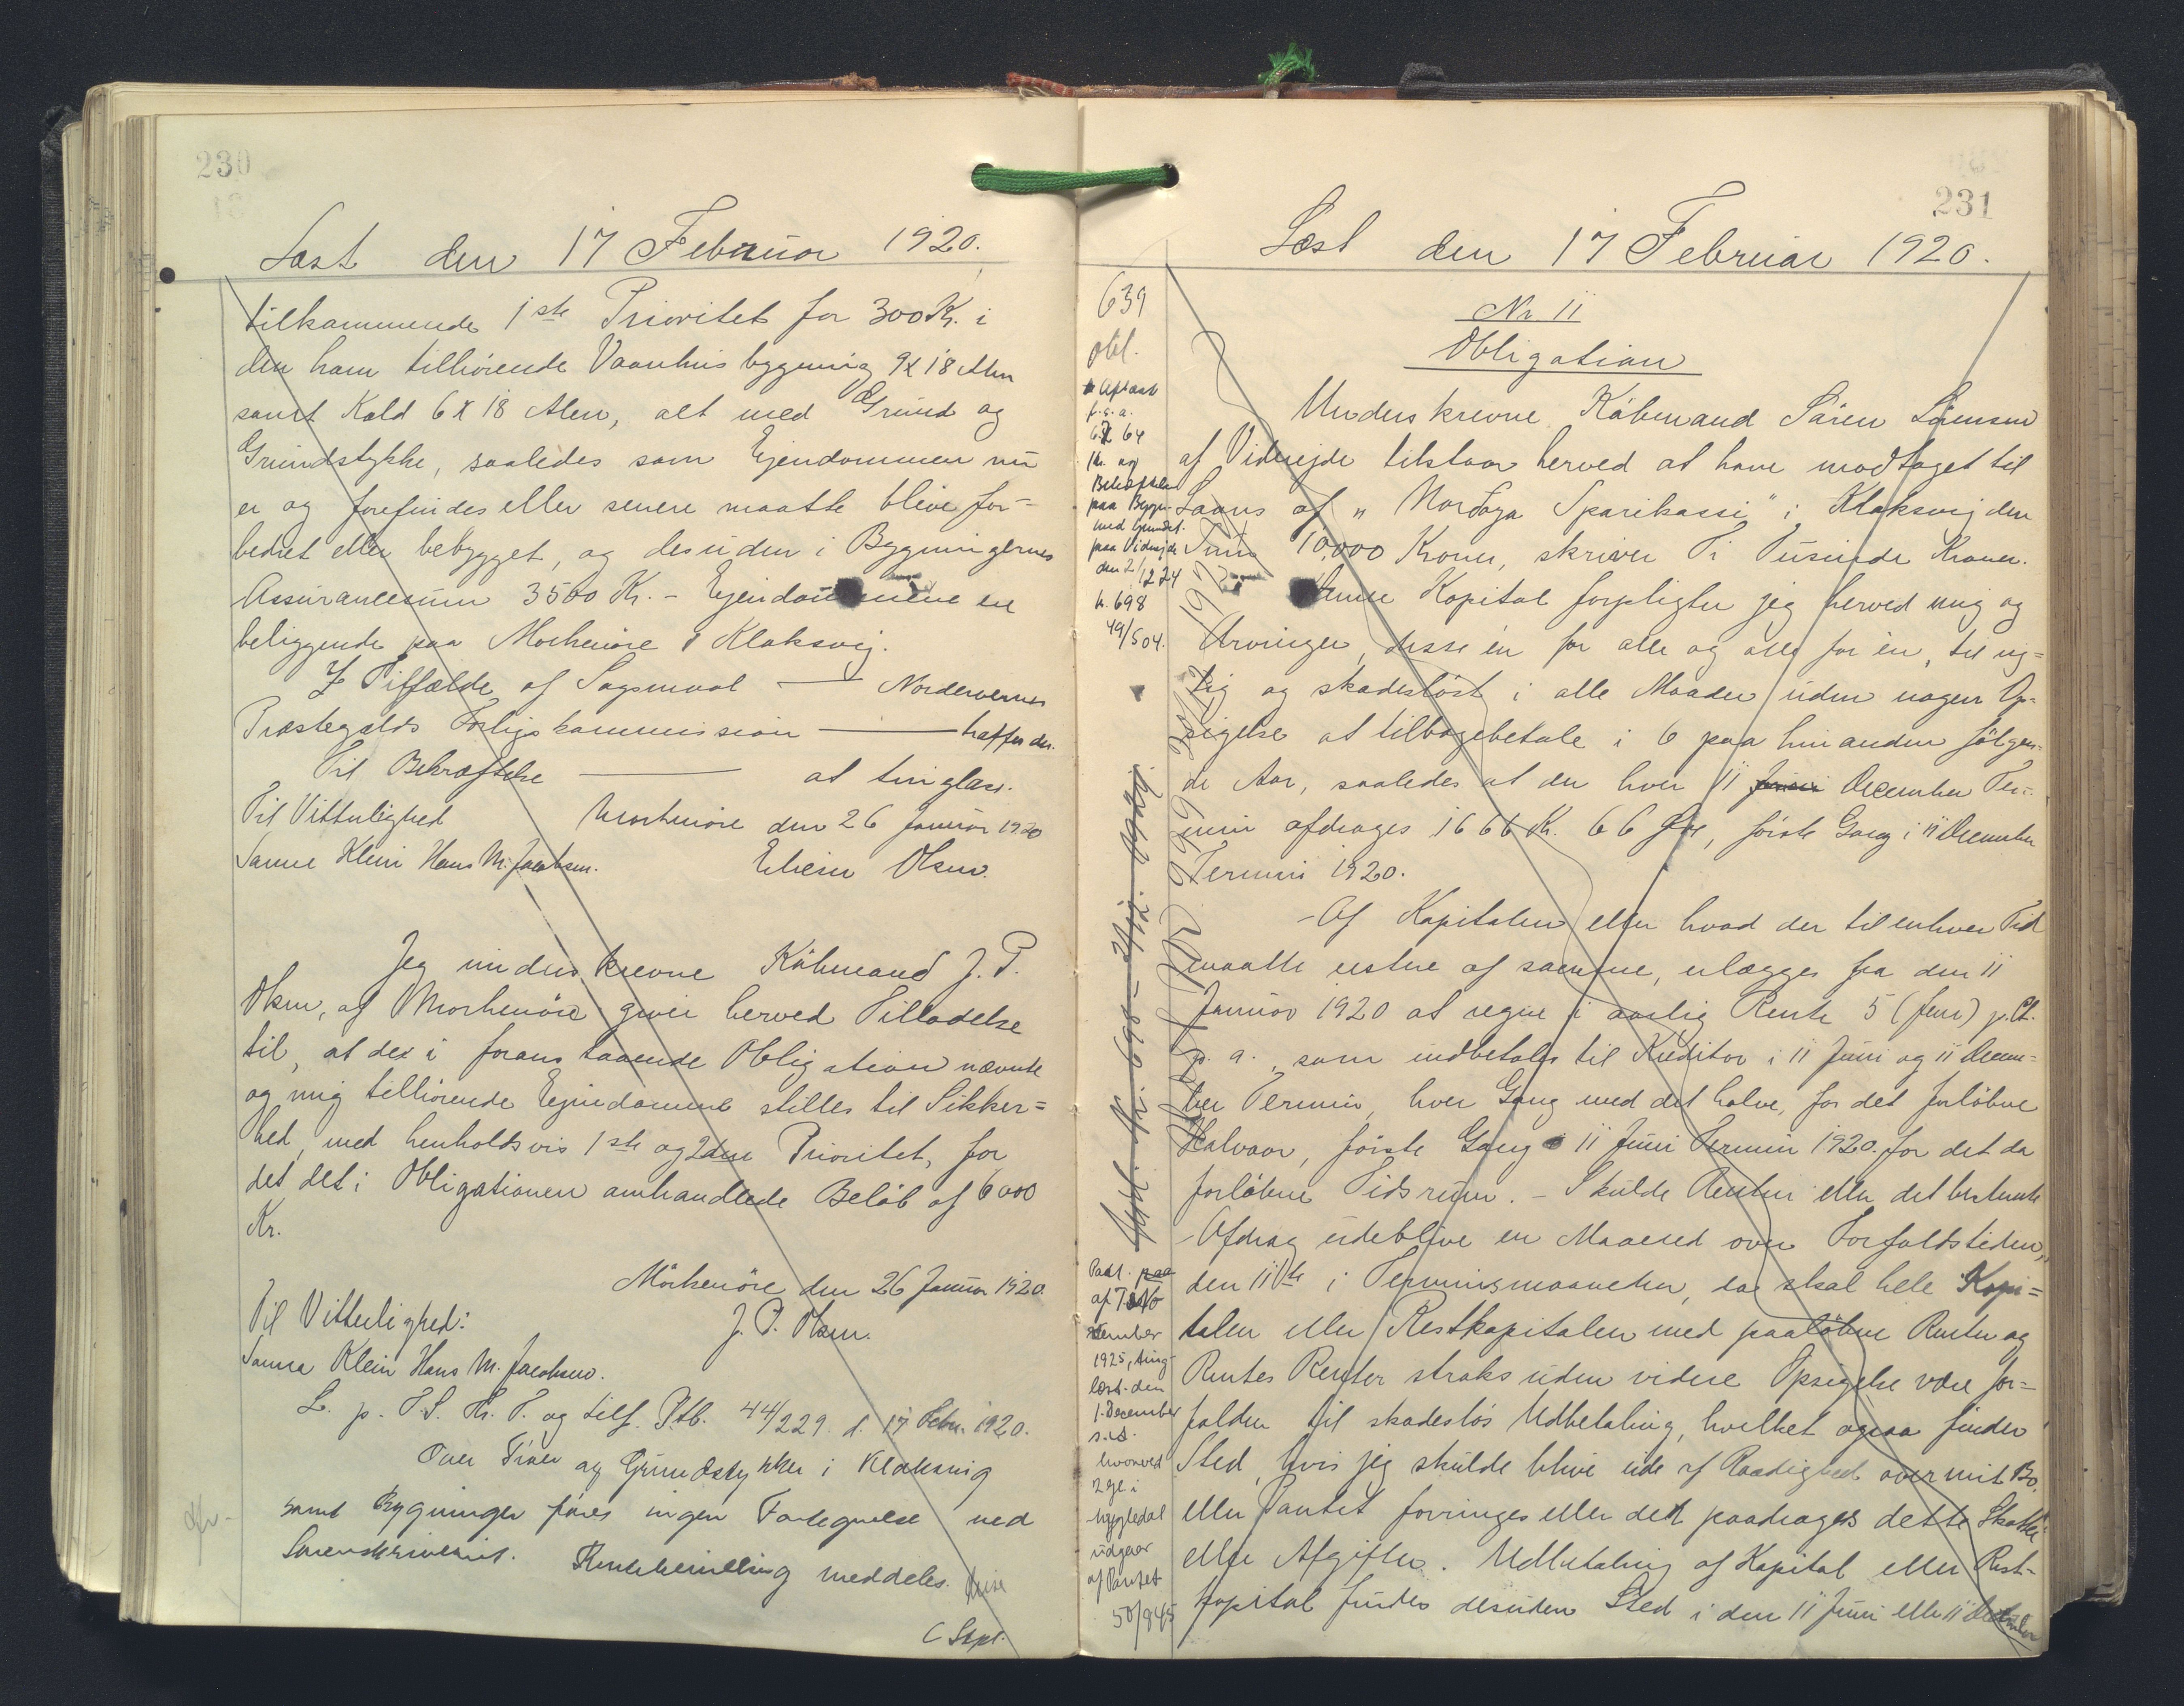 230
Læst den 17 Februar 1920.
tilkommende 1ste Prioritet for 300 Kr. i
den ham tilhørende Vaanhusbygning 9 x 18 Alen
samt Kald 6 x 18 Alen, alt med Grund og
Grundstykke, saaledes som Ejendommen nu
er og forefindes eller senere maatte blive for=
bedret eller bebygget, og desuden i Bygningernes
Assurancesum 3500 Kr. - Ejendommene er
beliggende paa Morkenöre i Klaksvig.
I Tilfælde af Søgsmaal — Norderøernes
Præstegjælds Forligskommission — træffes der.
Til Bekræftelse — at tinglæse.
Til Vitterlighed Morkenöre den 26 Januar 1920
Sanne Klein Hans M. Jacobsen. Eliesar Olsen.
Jeg underskrevne Köbmand J. P.
Olsen, af Morkenöre giver herved Tilladelse
til, at de i foranstaaende Obligation nævnte
og mig tilhörende Ejendomme stilles til Sikker=
hed, med henholdsvis 1ste og 2den Prioritet, for
det det i Obligationen omhandlede Belöb af 6000
Kr.
Mörkenöre den 26 Januar 1920.
Til Vitterlighed: J. P. Olsen.
Sanna Klein Hans M. Jacobsen.
L. p. F.S. Kr. T. og tilf. Ptb. 44/229. d. 17 Febr. 1920.
Over Tröer og Grundstykker i Klaksvig
samt Bygninger föres ingen Fortegnelse ved
Sorenskriveriet. Rentebevilling meddeles.
231
Læst den 17 Februar 1920.
639
obl.
Aflæst
Kr. og
Bekræftelse
paa Bygn.
med Grundst.
paa Viderejde
den 2/12 24
k. 698
49/504.
Nr 11
Obligation
Underskrevne Köbmand Sören Sörensen
af Viderejde tilstaar herved at have modtaget til
Laans af "Nordoya Sparikassi" i Klaksvig den
Sum 10,000 Kroner, skriver Ti Tusinde Kroner.
Denne Kapital forpligter jeg herved mig og
Arvinger, disse én for alle og alle for én, til rig=
tig og skadeslöst i alle Maader uden nogen Op=
sigelse at tilbagebetale i 6 paa hinanden fölgen=
de Aar, saaledes at der hver 11 Juni December Ter=
min afdrages 1666 Kr. 66 Øre, förste Gang i 11 December
Termin 1920.
Af Kapitalen eller hvad der til enhver Tid
maatte restere af samme, erlægges fra den 11
Januar 1920 at regne i aarlig Rente 5 (fem) p.Ct.
p. a., som indbetales til Kreditor i 11 Juni og 11 Decem=
ber Termin, hver Gang med det halve, for det forløbne
Halvaar, förste Gang i 11 Juni Termin 1920. for det da
forløbne Tidsrum. - Skulde Renten eller det bestemte
Afdrag udeblive en Maaned over Forfaldstiden,
den 11te i Terminsmaaneden, da skal hele Kapi=
talen eller Restkapitalen med paaløbne Renter og
Rentes Renter straks uden videre Opsigelse være for=
falden til skadeslös Udbetaling, hvilket ogsaa finder
Sted, hvis jeg skulde blive ude af Raadighed over mit Bo,
eller Pantet forringes eller det paadrages dette Skatter
eller Afgifter. Udbetaling af Kapital eller Rest-
kapital finder desuden Sted i den 11 Juni eller 11 December
1925, ting-
læst den
1. December
s. A.
hvorved
2 gl i
udgaar
af Pantet
50/945